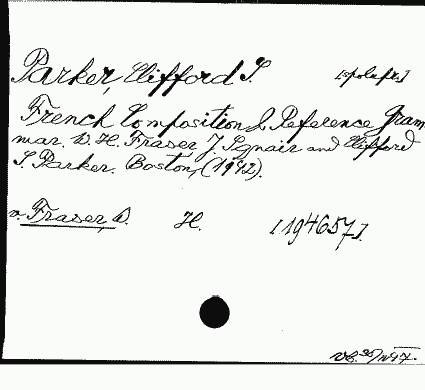 Parker, Clifford S. [spolufr.]
French Composition & Reference Gram
mar. W. H. Fraser, J. Squair and Clifford
S. Parker. Boston, (1942).
v. Fraser, W. H. [194657].